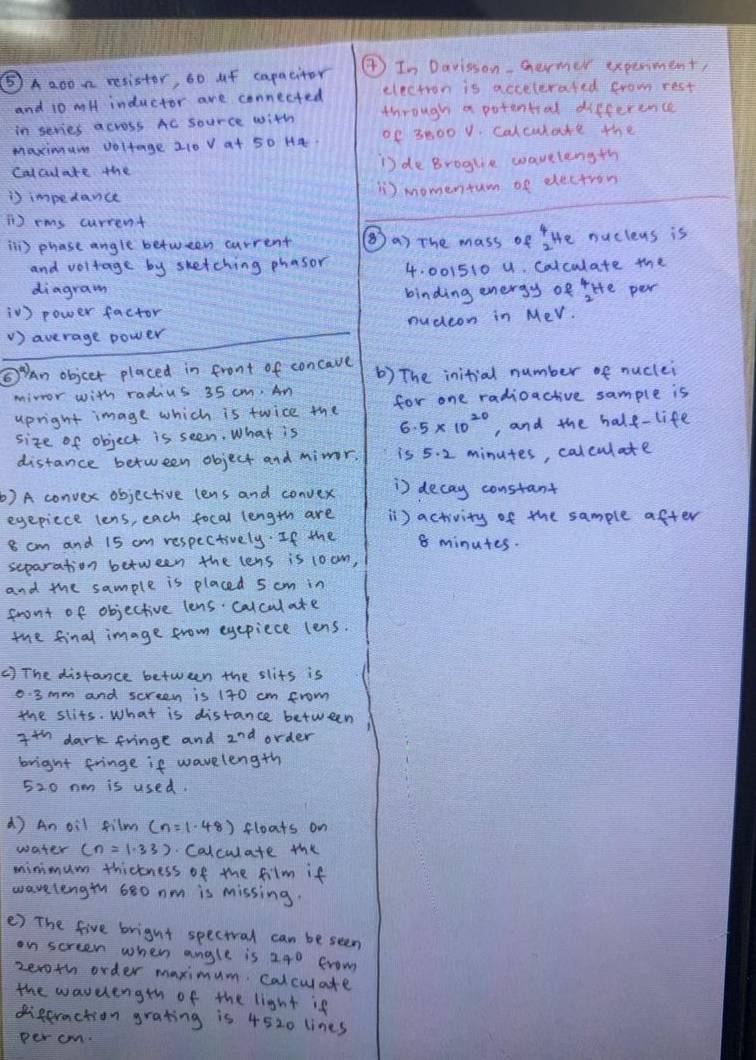 ⑤ A 200 Ω resistor, 60 μF capacitor
and 10 mH inductor are connected
in series across AC source with
maximum voltage 210 V at 50 Hz.
Calculate the
i) impedance
ii) rms current
iii) phase angle between current
and voltage by sketching phasor
diagram
iv) power factor
v) average power
⑥ a) An objcet placed in front of concave
mirror with radius 35 cm. An
upright image which is twice the
size of object is seen. What is
distance between object and mirror.
b) A convex objective lens and convex
eyepiece lens, each focal length are
8 cm and 15 cm respectively. If the
separation between the lens is 10 cm,
and the sample is placed 5 cm in
front of objective lens. Calculate
the final image from eyepiece lens.
c) The distance between the slits is
0.3 mm and screen is 170 cm from
the slits. What is distance between
7th dark fringe and 2nd order
bright fringe if wavelength
520 nm is used.
d) An oil film (n=1.48) floats on
water (n=1.33). Calculate the
minimum thickness of the film if
wavelength 680 nm is missing.
e) The five bright spectral can be seen
on screen when angle is 24° from
zeroth order maximum. Calculate
the wavelength of the light if
diffraction grating is 4520 lines
per cm.
⑦ In Davisson - Germer experiment,
electron is accelerated from rest
through a potential difference
of 3800 V. Calculate the
i) de Broglie wavelength
ii) momentum of electron
⑧ a) The mass of ⁴₂He nucleus is
4.001510 u. Calculate the
binding energy of ⁴₂He per
nucleon in MeV.
b) The initial number of nuclei
for one radioactive sample is
6.5 × 10²⁰, and the half-life
is 5.2 minutes, calculate
i) decay constant
ii) activity of the sample after
8 minutes.